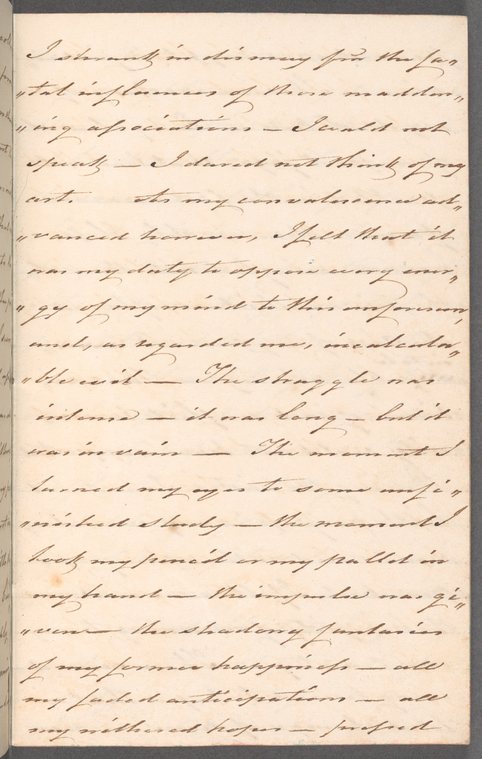 I shrunk in dismay frm the fa"
"tal influences of those madden"
"ing associations — I could not
speak — I dared not think of my
art. As my convalescence ad"
"vanced however, I felt that it
was my duty to oppose every ener"
"gy of my mind to this unforeseen,
and, as regarded me, incalcula"
"ble evil — The struggle was
intense — it was long — but it
was in vain — The moment I
turned my eyes to some unfi"
"nished study — the moment I
took my pencil or my pallet in
my hand — the impulse was gi"
"ven — the shadowy fantasies
of my former happiness — all
my faded anticipations — all
my withered hopes — pressed